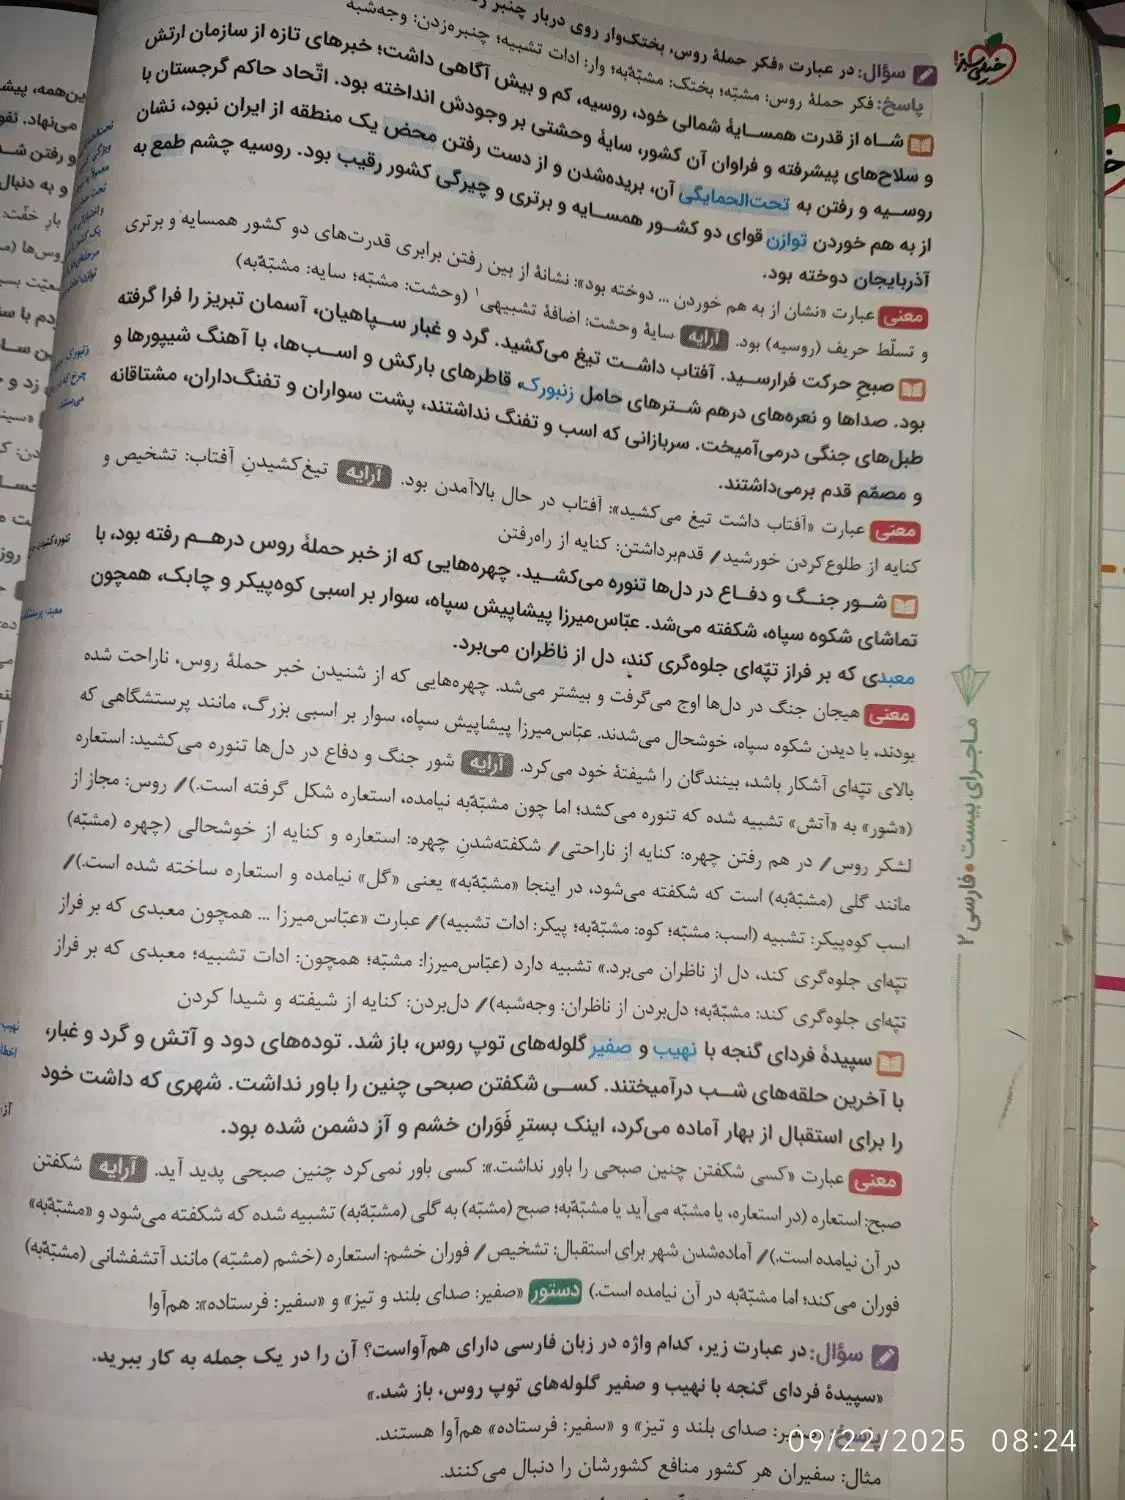 سؤال: در عبارت «فکر حملهٔ روس، بختک‌وار روی دربار چنبر
پاسخ: فکر حملهٔ روس: مشبّه؛ بختک: مشبّهٌ‌به؛ وار: ادات تشبیه؛ چنبره‌زدن: وجه‌شبه
شاه از قدرت همسایهٔ شمالی خود، روسیه، کم و بیش آگاهی داشت؛ خبرهای تازه از سازمان ارتش
و سلاح‌های پیشرفته و فراوان آن کشور، سایهٔ وحشتی بر وجودش انداخته بود. اتّحاد حاکم گرجستان با
روسیه و رفتن به تحت‌الحمایگی آن، بریده‌شدن و از دست رفتن محض یک منطقه از ایران نبود، نشان
از به هم خوردن توازن قوای دو کشور همسایه و برتری و چیرگی کشور رقیب بود. روسیه چشم طمع به
آذربایجان دوخته بود.
معنی عبارت «نشان از به هم خوردن ... دوخته بود»: نشانهٔ از بین رفتن برابری قدرت‌های دو کشور همسایه و برتری
و تسلّط حریف (روسیه) بود. آرایه سایهٔ وحشت: اضافهٔ تشبیهی۱ (وحشت: مشبّه؛ سایه: مشبّهٌ‌به)
صبح حرکت فرارسید. آفتاب داشت تیغ می‌کشید. گرد و غبار سپاهیان، آسمان تبریز را فرا گرفته
بود. صداها و نعره‌های درهم شترهای حامل زنبورک، قاطرهای بارکش و اسب‌ها، با آهنگ شیپورها و
طبل‌های جنگی درمی‌آمیخت. سربازانی که اسب و تفنگ نداشتند، پشت سواران و تفنگ‌داران، مشتاقانه
و مصمّم قدم برمی‌داشتند.
معنی عبارت «آفتاب داشت تیغ می‌کشید»: آفتاب در حال بالاآمدن بود. آرایه تیغ‌کشیدنِ آفتاب: تشخیص و
کنایه از طلوع‌کردن خورشید/ قدم‌برداشتن: کنایه از راه‌رفتن
شور جنگ و دفاع در دل‌ها تنوره می‌کشید. چهره‌هایی که از خبر حملهٔ روس درهم رفته بود، با
تماشای شکوه سپاه، شکفته می‌شد. عبّاس‌میرزا پیشاپیش سپاه، سوار بر اسبی کوه‌پیکر و چابک، همچون
معبدی که بر فراز تپّه‌ای جلوه‌گری کند، دل از ناظران می‌برد.
معنی هیجان جنگ در دل‌ها اوج می‌گرفت و بیشتر می‌شد. چهره‌هایی که از شنیدن خبر حملهٔ روس، ناراحت شده
بودند، با دیدن شکوه سپاه، خوشحال می‌شدند. عبّاس‌میرزا پیشاپیش سپاه، سوار بر اسبی بزرگ، مانند پرستشگاهی که
بالای تپّه‌ای آشکار باشد، بینندگان را شیفتهٔ خود می‌کرد. آرایه شور جنگ و دفاع در دل‌ها تنوره می‌کشید: استعاره
(«شور» به «آتش» تشبیه شده که تنوره می‌کشد؛ اما چون مشبّهٌ‌به نیامده، استعاره شکل گرفته است.)/ روس: مجاز از
لشکر روس/ در هم رفتن چهره: کنایه از ناراحتی/ شکفته‌شدنِ چهره: استعاره و کنایه از خوشحالی (چهره (مشبّه)
مانند گلی (مشبّهٌ‌به) است که شکفته می‌شود، در اینجا «مشبّهٌ‌به» یعنی «گل» نیامده و استعاره ساخته شده است.)/
اسب کوه‌پیکر: تشبیه (اسب: مشبّه؛ کوه: مشبّهٌ‌به؛ پیکر: ادات تشبیه)/ عبارت «عبّاس‌میرزا ... همچون معبدی که بر فراز
تپّه‌ای جلوه‌گری کند، دل از ناظران می‌برد.» تشبیه دارد (عبّاس‌میرزا: مشبّه؛ همچون: ادات تشبیه؛ معبدی که بر فراز
تپّه‌ای جلوه‌گری کند: مشبّهٌ‌به؛ دل‌بردن از ناظران: وجه‌شبه)/ دل‌بردن: کنایه از شیفته و شیدا کردن
سپیدهٔ فردای گنجه با نهیب و صفیر گلوله‌های توپ روس، باز شد. توده‌های دود و آتش و گرد و غبار،
با آخرین حلقه‌های شب درآمیختند. کسی شکفتن صبحی چنین را باور نداشت. شهری که داشت خود
را برای استقبال از بهار آماده می‌کرد، اینک بسترِ فَوَران خشم و آز دشمن شده بود.
معنی عبارت «کسی شکفتن چنین صبحی را باور نداشت.»: کسی باور نمی‌کرد چنین صبحی پدید آید. آرایه شکفتن
صبح: استعاره (در استعاره، یا مشبّه می‌آید یا مشبّهٌ‌به؛ صبح (مشبّه) به گلی (مشبّهٌ‌به) تشبیه شده که شکفته می‌شود و «مشبّهٌ‌به»
در آن نیامده است.)/ آماده‌شدن شهر برای استقبال: تشخیص/ فوران خشم: استعاره (خشم (مشبّه) مانند آتشفشانی (مشبّهٌ‌به)
فوران می‌کند؛ اما مشبّهٌ‌به در آن نیامده است.) دستور «صفیر: صدای بلند و تیز» و «سفیر: فرستاده»: هم‌آوا
سؤال: در عبارت زیر، کدام واژه در زبان فارسی دارای هم‌آواست؟ آن را در یک جمله به کار ببرید.
«سپیدهٔ فردای گنجه با نهیب و صفیر گلوله‌های توپ روس، باز شد.»
پاسخ: صفیر: صدای بلند و تیز» و «سفیر: فرستاده» هم‌آوا هستند.
مثال: سفیران هر کشور منافع کشورشان را دنبال می‌کنند.
خیلی سبز
ماجرای بیست • فارسی ۲
09/22/2025 08:24